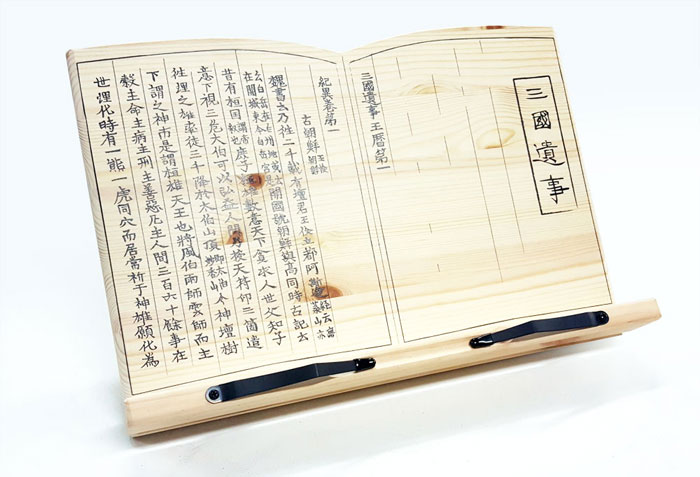 三國遺事
三國遺事 王曆第一
紀異卷第一
古朝鮮 王儉朝鮮
魏書云乃往二千載有壇君王儉立都阿斯達 經云無葉山亦
云白岳在白州地或云在開城東今白岳宮是 開國號朝鮮與高同時古記云
昔有桓国 謂帝釋也 庶子桓雄數意天下貪求人世父知子
意下視三危大伯可以弘益人間乃授天符印三箇遣
往理之雄率徒三千降於太伯山頂 即太伯今妙香山 神壇樹
下謂之神市是謂桓雄天王也將風伯雨師雲師而主
穀主命主病主刑主善惡凡主人間三百六十餘事在
世理化時有一熊一虎同穴而居常祈于神雄願化為